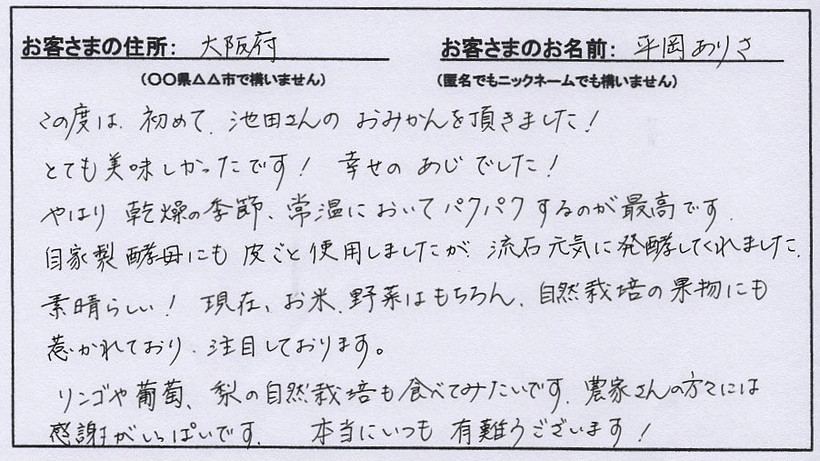 お客さまの住所: 大阪府 お客さまのお名前: 平岡ありさ
(〇〇県△△市で構いません) (匿名でもニックネームでも構いません)
この度は、初めて、池田さんの おみかんを頂きました!
とても美味しかったです! 幸せの あじでした!
やはり 乾燥の季節、常温において パクパクするのが最高です。
自家製酵母にも 皮ごと使用しましたが、流石元気に発酵してくれました。
素晴らしい! 現在、お米、野菜はもちろん、自然栽培の果物にも
惹かれており、注目しております。
リンゴや葡萄、梨の自然栽培も食べてみたいです。農家さんの方々には
感謝がいっぱいです。 本当にいつも 有難うございます!